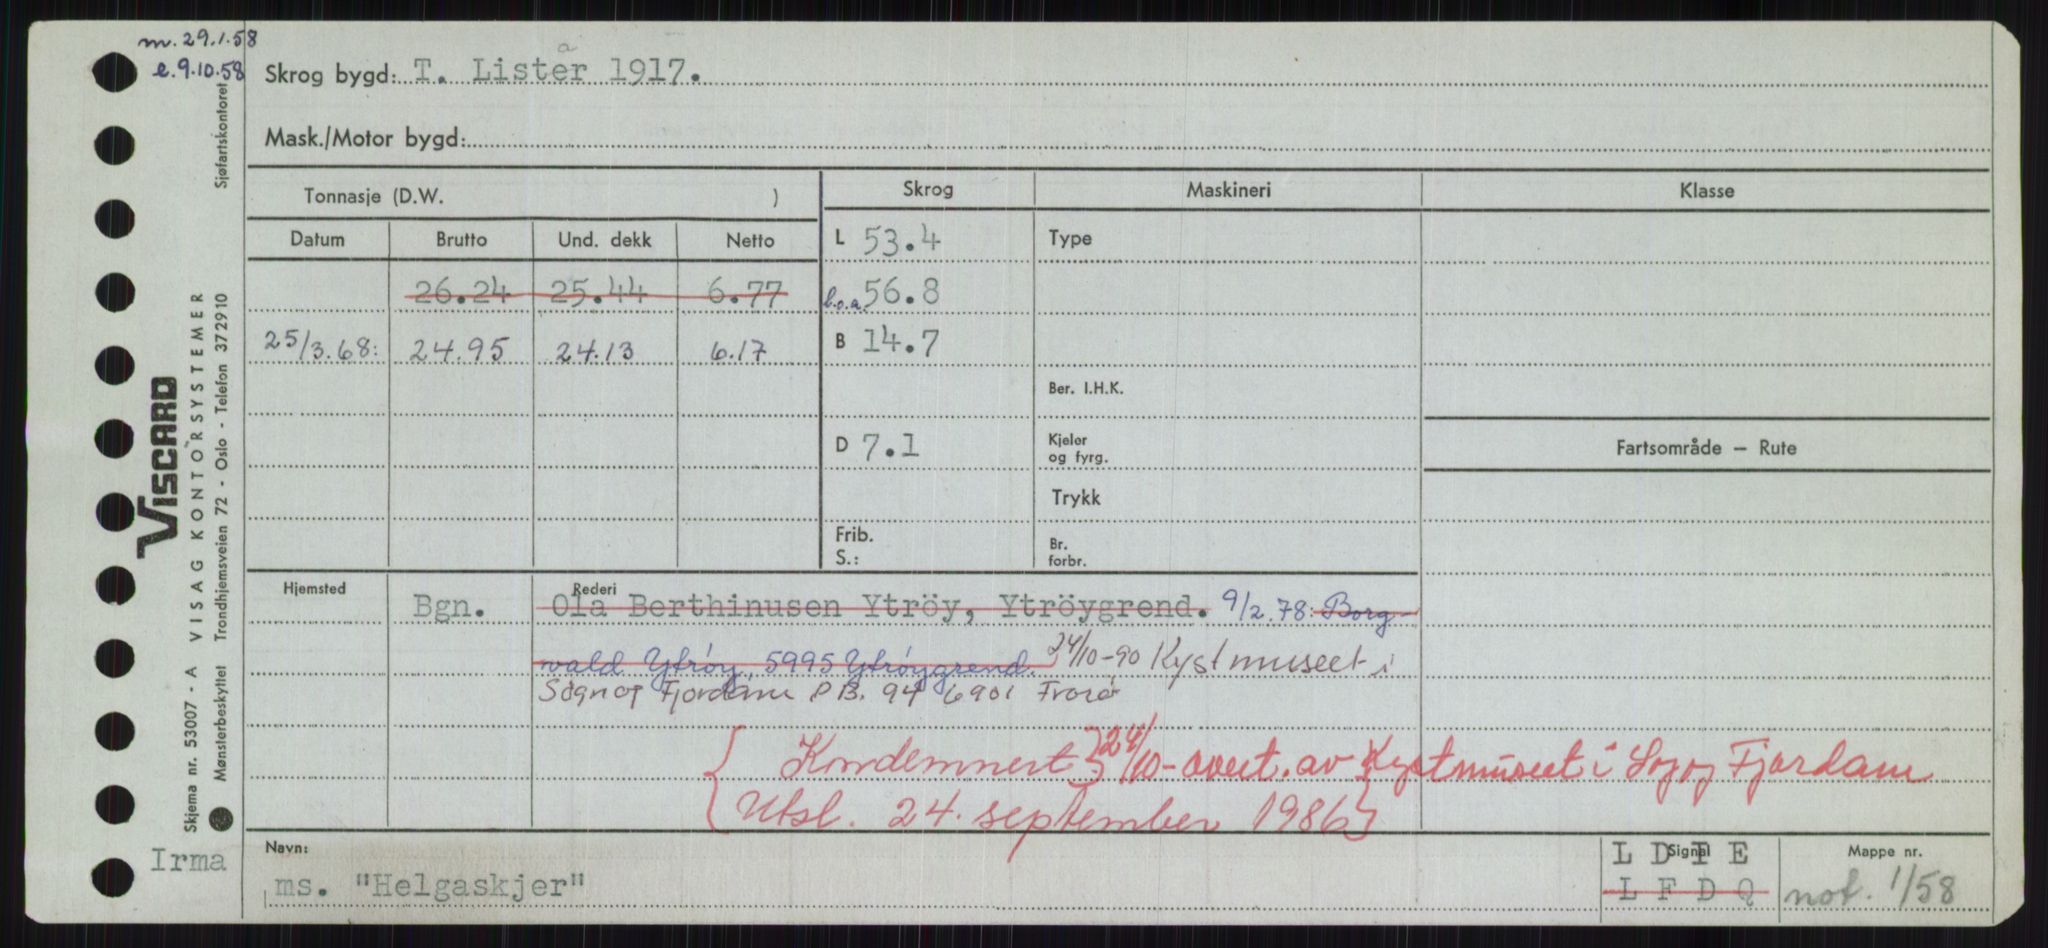 m. 29.1.58
e. 9.10.58
Skrog bygd: T. Lista 1917.
Mask./Motor bygd:
Tonnasje (D.W. )
Skrog
Maskineri
Klasse
Datum Brutto Und. dekk Netto
L 53.4
Type
26.24 25.44 6.77
l.o.a. 56.8
25/3.68: 24.95 24.13 6.17
B 14.7
Ber. I.H.K.
D 7.1
Kjeler
og fyrg.
Fartsområde — Rute
Trykk
Frib.
S.:
Br.
forbr.
Hjemsted
Bgn.
Rederi
Ola Berthinusen Ytröy, Ytröygrend. 9/2.78: Borg-
vald Ytröy, 5995 Ytröygrend. 24/10-90 Kystmuseet i
Sogn og Fjordane P.B. 94 6901 Florø
{ Kondemnert } 24/10- overt. av Kystmuseet i Sogn og Fjordane
{ Utsl. 24. september 1986 }
Irma
Navn:
ms. "Helgaskjer"
Signal
L D T E
L F D Q
Mappe nr.
not. 1/58
Sjøfartskontoret
VISCARD
VISAG KONTORSYSTEMER
Trondhjemsveien 72 - Oslo - Telefon 372910
Skjema nr. 53007 - A
Mønsterbeskyttet